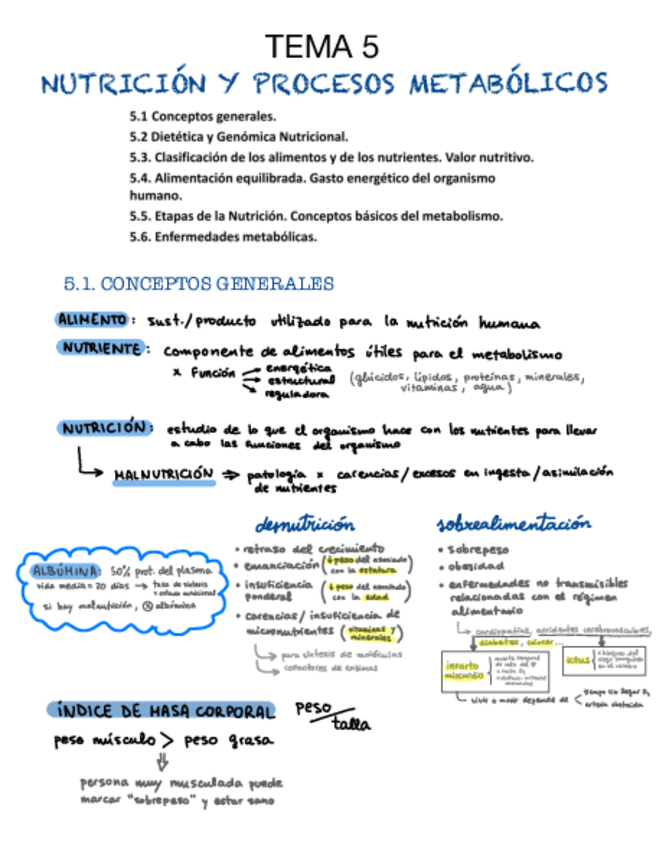 TEMA 5
NUTRICIÓN Y PROCESOS METABÓLICOS
5.1 Conceptos generales.
5.2 Dietética y Genómica Nutricional.
5.3. Clasificación de los alimentos y de los nutrientes. Valor nutritivo.
5.4. Alimentación equilibrada. Gasto energético del organismo
humano.
5.5. Etapas de la Nutrición. Conceptos básicos del metabolismo.
5.6. Enfermedades metabólicas.
5.1. CONCEPTOS GENERALES
ALIMENTO: sust./producto utilizado para la nutrición humana
NUTRIENTE: componente de alimentos útiles para el metabolismo
x Función
energética
estructural
reguladora
(glúcidos, lípidos, proteínas, minerales,
vitaminas, agua)
NUTRICIÓN: estudio de lo que el organismo hace con los nutrientes para llevar
a cabo las funciones del organismo
MALNUTRICIÓN ⇒ patología x carencias/excesos en ingesta/asimilación
de nutrientes
ALBÚMINA: 50% prot. del plasma
vida media = 20 días → tasa de síntesis
+ estado nutricional
si hay malnutrición, albúmina
desnutrición
• retraso del crecimiento
• emanciación (↓ peso del asociado
con la estatura
• insuficiencia
ponderal
(↓ peso del asociado
con la edad
• carencias/insuficiencia de
micronutrientes (vitaminas y
minerales)
para síntesis de moléculas
cofactores de enzimas
sobrealimentación
• sobrepeso
• obesidad
• enfermedades no transmisibles
relacionadas con el régimen
alimentario
cardiopatías, accidentes cerebrovasculares,
diabetes, cáncer...
infarto
miocardio
muerte temporal
ictus
vivir o morir depende de
tiempo sin llegar O₂
arteria obstruida
ÍNDICE DE MASA CORPORAL peso/talla
peso músculo > peso grasa
persona muy musculada puede
marcar "sobrepeso" y estar sano